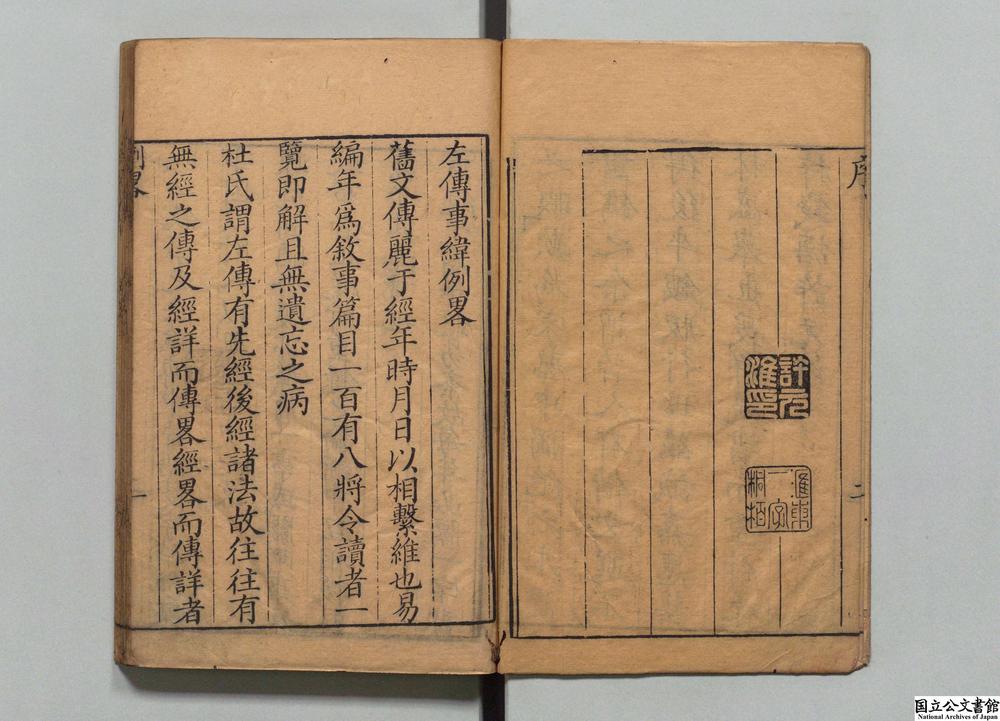 序
二
許元淮印
淮東一字桐栢
左傳事緯例畧
舊文傳麗于經年時月日以相繫維也易
編年爲敘事篇目一百有八將令讀者一
覽即解且無遺忘之病
杜氏謂左傳有先經後經諸法故往往有
無經之傳及經詳而傳畧經畧而傳詳者
例畧
一
国立公文書館
National Archives of Japan